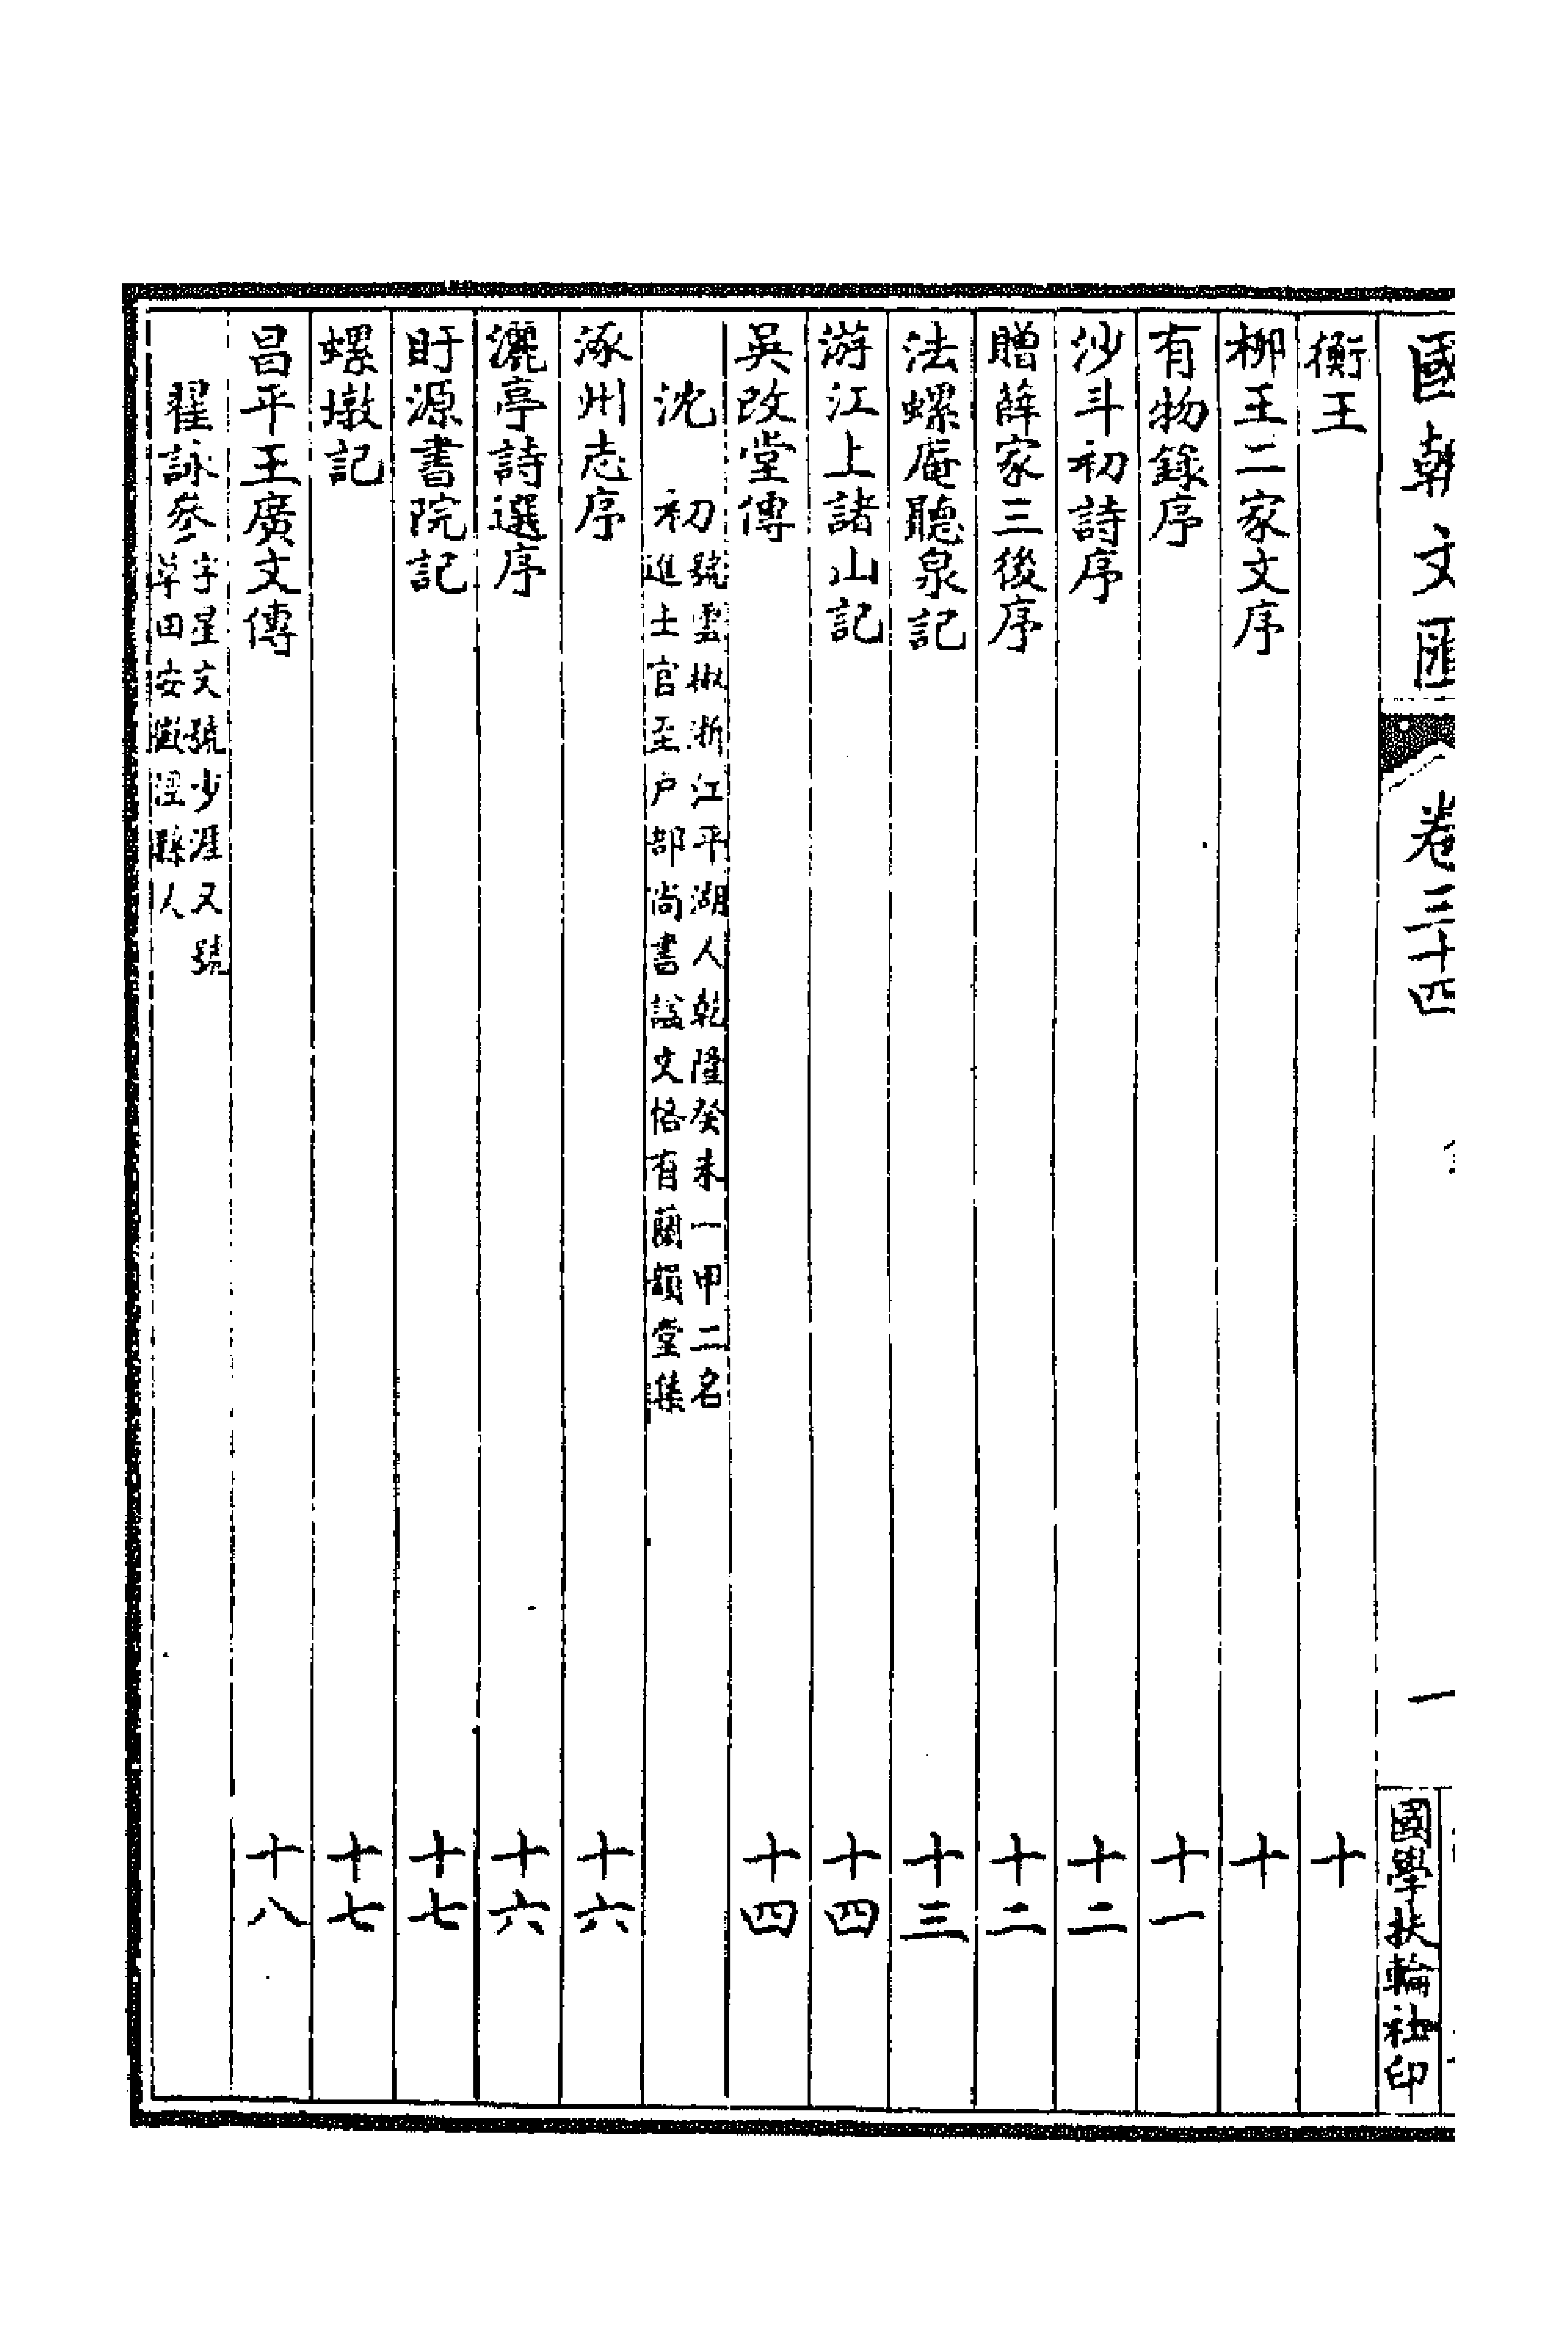 國朝文匯 卷三十四 一 國學扶輪社印
衡王 十
柳王二家文序 十
有物錄序 十一
沙斗初詩序 十二
贈薛家三後序 十二
法螺庵聽泉記 十三
游江上諸山記 十四
吳改堂傳 十四
沈 初 號雲椒浙江平湖人乾隆癸未一甲二名
進士官至戶部尚書諡文恪有蘭韻堂集
涿州志序 十六
灑亭詩選序 十六
盱源書院記 十七
螺墩記 十七
昌平王廣文傳 十八
翟詠參 字星文號少涯又號
草田安徽涇縣人